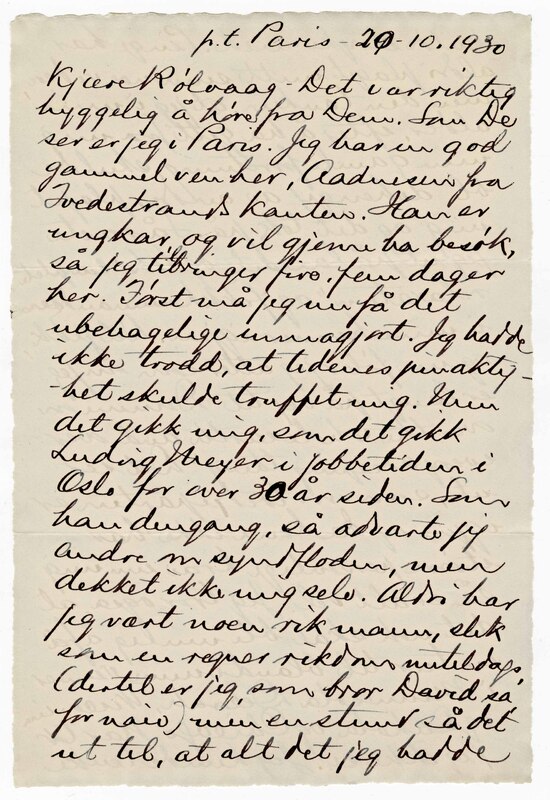 p.t. Paris - 29-10.1930
Kjære Rølvaag - Det var riktig
hyggelig å høre fra Dem. Som De
ser er jeg i Paris. Jeg har en god
gammel ven her, Aadnesen fra
Tvedestrands kanten. Han er
ungkar, og vil gjerne ha besøk,
så jeg tilbringer fire, fem dager
her. Først må jeg nu få det
ubehagelige unnagjort. Jeg hadde
ikke trodd, at tidenes pinakty-
-het skulde truffet mig. Men
det gikk mig, som det gikk
Ludvig Meyer i jobbetiden i
Oslo for over 30 år siden. Som
han dengang, så advarte jeg
andre m syndfloden, men
dekket ikke mig selv. Aldri har
jeg vært noen rik mann, slik
som en regner rikdom nutildags
(dertil er jeg, som bror David så
for naiv) men en stund så det
ut til, at alt det jeg hadde